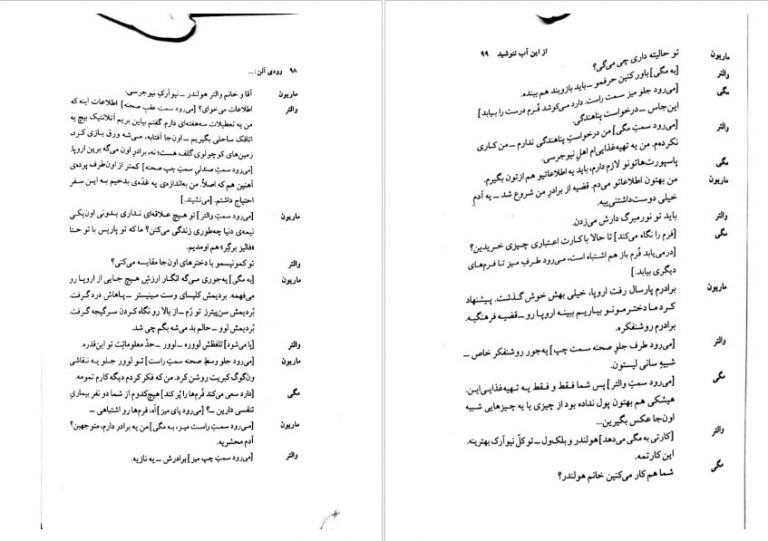 ۹۸ وودی آلن: ...
ماریون آقا و خانم والتر هولندر ــ نیوآرکِ نیوجرسی.
والتر اطلاعات می‌خوای؟ [می‌رود سمتِ عقبِ صحنه] اطلاعات اینه که
من یه تعطیلات سه‌هفته‌ای دارم. گفتم بیاین بریم آتلانتیک بیچ یه
اتاقک ساحلی بگیریم ــ اون‌جا آفتابه، می‌شه ورق بازی کرد،
زمین‌های کوچولوی گلف هست؛ نه، برادرِ اون می‌گه برین اروپا.
[می‌رود سمتِ صندلیِ سمتِ چپِ صحنه] کمتر از اون‌طرف پرده‌ی
آهنین هم که اصلاً. من به‌اندازه‌ی یه غدّه‌ی بدخیم به این سفر
احتیاج داشتم. [می‌نشیند.]
ماریون [می‌رود سمتِ والتر] تو هیچ علاقه‌ای نداری بدونی اون‌یکی
نیمه‌ی دنیا چه‌طوری زندگی می‌کنن؟ ما که تو پاریس با تورِ حنا
«فالیز برگِر» هم اومدیم.
والتر تو کمونیسمو با دخترهای اون‌جا مقایسه می‌کنی؟
ماریون [به مگی] یه‌جوری می‌گه انگار ارزشِ هیچ جایی از اروپا رو
می‌فهمه. بردیمش کلیسای وست مینیستر ــ پاهاش درد گرفت.
بُردیمش سن‌پیترز تو رُم ــ از بالا رو نگاه کردن سرگیجه گرفت.
بُردیمش لوو ــ حالم بد می‌شه بگم چی شد.
والتر [پا می‌شود] تلفظش لووره ــ لوور ــ حدِّ معلوماتِ تو این‌قدره.
ماریون [می‌رود جلوِ وسطِ صحنه سمتِ راست] تو لوور جلو یه نقاشی
ون‌گوگ کبریت روشن کرد. من که فکر کردم دیگه کارم تمومه.
مگی [دارد سعی می‌کند فُرم‌ها را پُر کند] هیچ‌کدوم از شما دو نفر بیماریِ
تنفسی دارین ــ؟ [می‌رود پای میز] آه، فُرم‌ها رو اشتباهی ــ
ماریون [می‌رود سمتِ راست میز، به مگی] من یه برادر دارم، متوجهین؟
آدم محشریه.
والتر [می‌رود سمتِ چپِ میز] برادرش ــ یه نازیه.
از این آب ننوشید ۹۹
ماریون تو حالیته داری چی می‌گی؟
والتر [به مگی] باور کنین حرفمو ــ باید بازوبند هم ببنده.
مگی [می‌رود جلو میز سمت راست. دارد می‌کوشد فُرم درست را بیابد]
این‌جاس ــ درخواستِ پناهندگی.
والتر [می‌رود سمتِ مگی] من درخواستِ پناهندگی ندارم ــ من کاری
نکرده‌م. من یه تهیه‌غذایی‌ام اهلِ نیوجرسی.
مگی پاسپورت‌هاتونو لازم دارم، باید یه اطلاعاتیو هم ازتون بگیرم.
ماریون من بهتون اطلاعاتو می‌دم. قضیه از برادرِ من شروع شد ــ یه آدمِ
خیلی دوست‌داشتنی‌یه.
والتر باید تو نورمبرگ دارش می‌زدن.
مگی [فرم را نگاه می‌کند] تا حالا با کارت اعتباری چیزی خریدین؟
[درمی‌یابد فُرم باز هم اشتباه است، می‌رود طرفِ میز تا فرم‌های
دیگری بیابد.]
ماریون برادرم پارسال رفت اروپا، خیلی بهش خوش گذشت. پیشنهاد
کرد ما دخترمونو بیاریم ببینه اروپا رو ــ قضیه فرهنگیه.
برادرم روشنفکره.
والتر [می‌رود طرف جلوِ صحنه سمت چپ] یه‌جور روشنفکرِ خاص ــ
شبیهِ سانی لیستون.
مگی [می‌رود سمتِ والتر] پس شما فقط و فقط یه تهیه‌غذایی‌این.
هیشکی هم بهتون پول نداده بود از چیزی یا یه چیزهایی شبیه
اون‌جا عکس بگیرین...
والتر [کارتی به مگی می‌دهد] هولندر و بلک‌ول ــ تو کلّ نیوآرک بهترینه.
این کارتمه.
مگی شما هم کار می‌کنین خانم هولندر؟